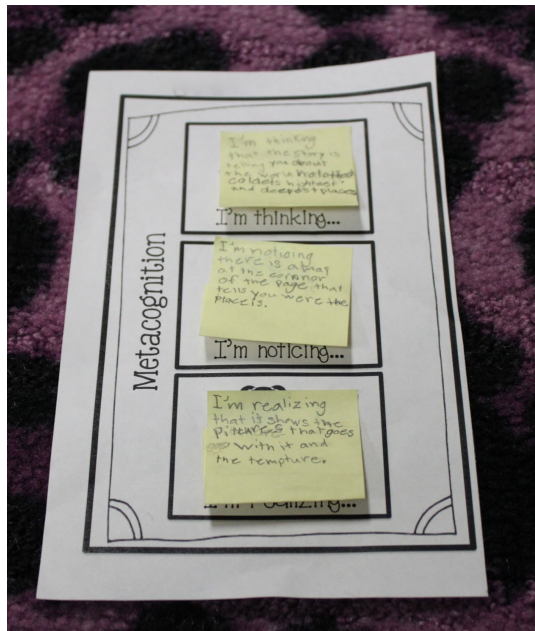 Metacognition
I'm thinking
that the story is
telling you about
the world
coldets hightest
and deepest places
I'm thinking...
I'm noticing
there is a map
at the cornnor
of the page that
tells you were the
place is.
I'm noticing...
I'm realizing
that it shows the
pitcures that goes
with it and
the tempture.
I'm realizing...